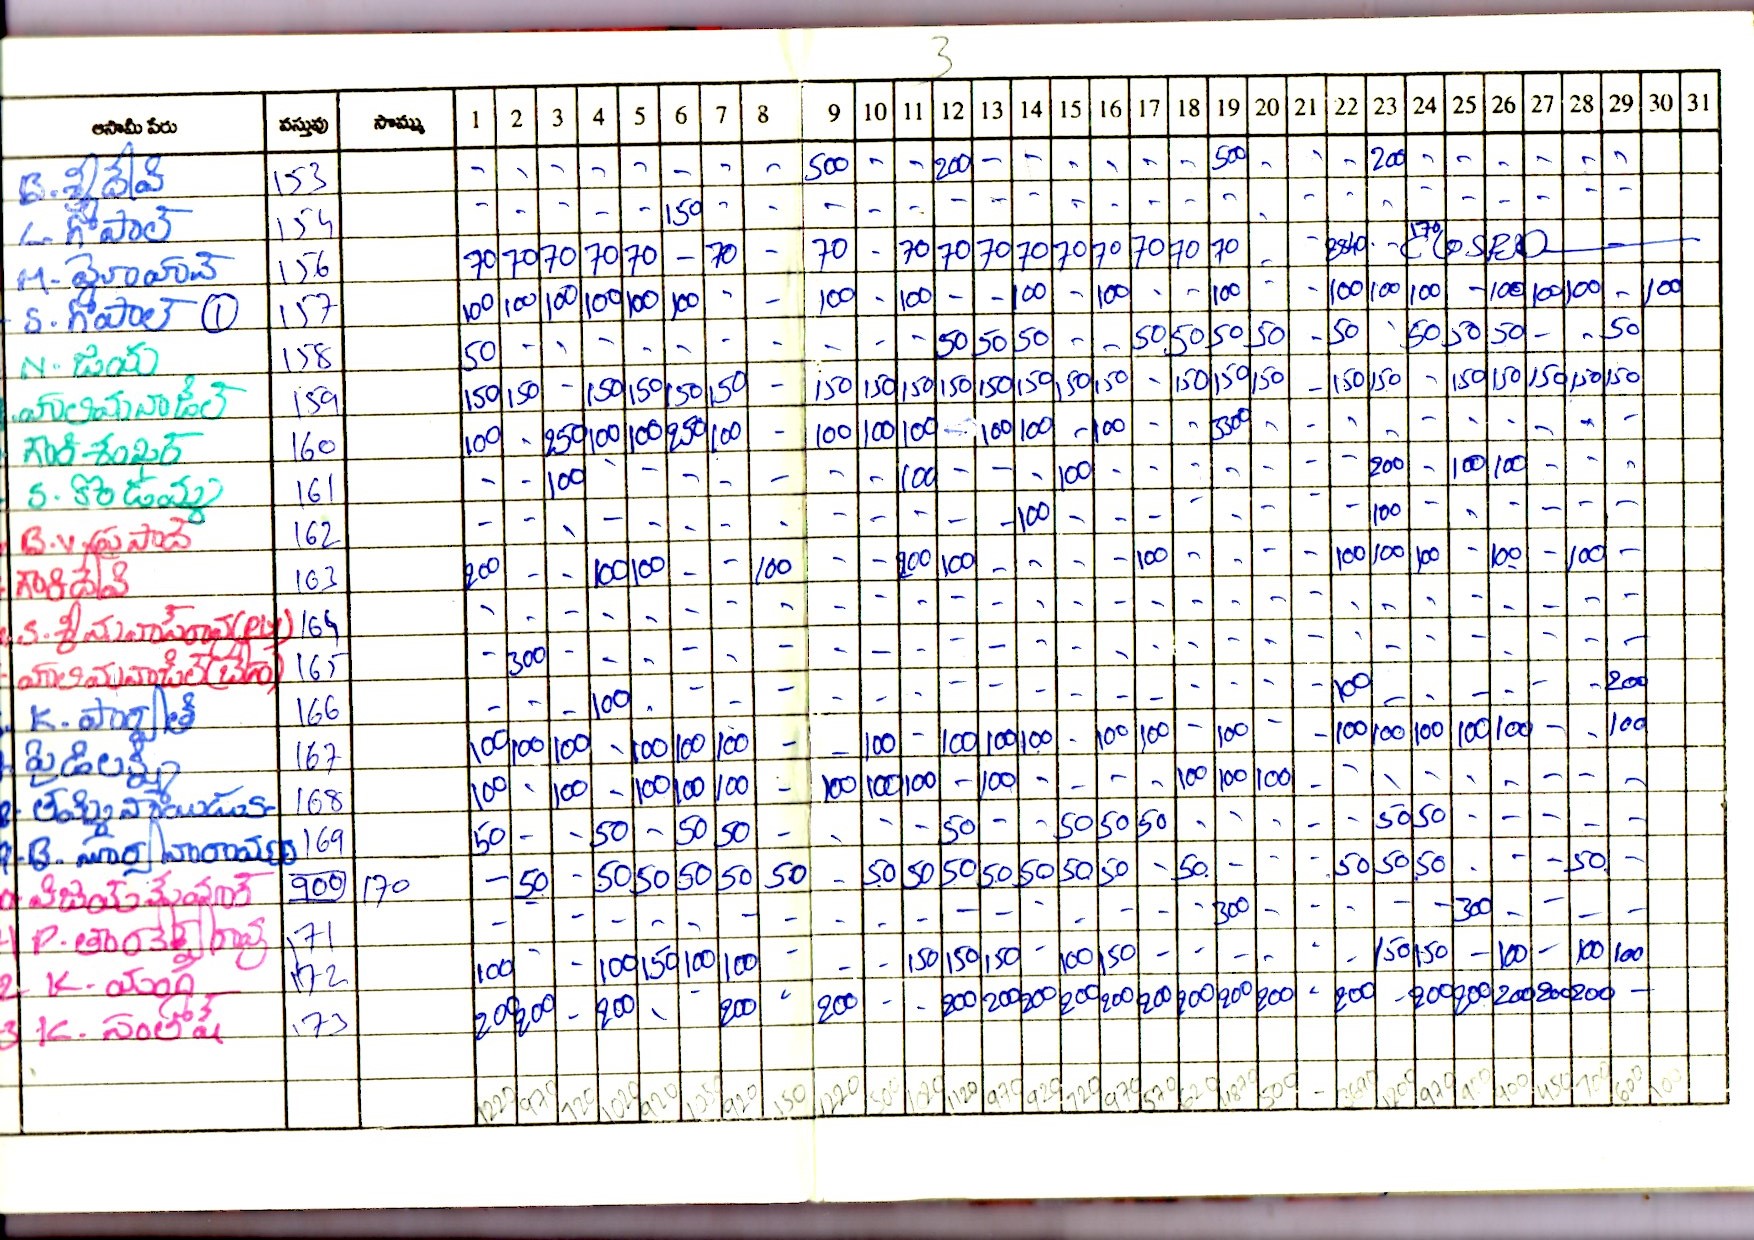 3
ఆసామీ పేరు వస్తువు సొమ్ము 1 2 3 4 5 6 7 8 9 10 11 12 13 14 15 16 17 18 19 20 21 22 23 24 25 26 27 28 29 30 31
B. శ్రీదేవి 153 - - - - - - - - 500 - - 200 - - - - - - 500 - - - 200 - - - - - -
L. గోపాల్ 154 - - - - - 150 - - - - - - - - - - - - - - - - - - - - - -
156 70 70 70 70 70 - 70 - 70 - 70 70 70 70 70 70 70 70 70 - - 2840 - 170 CLOSED
S. గోపాల్ ① 157 100 100 100 100 100 100 - - 100 - 100 - - 100 - 100 - - 100 - - 100 100 100 - 100 100 100 - 100
N. జయ 158 50 - - - - - - - - - - 50 50 50 - - 50 50 50 50 - 50 - 50 50 50 - - 50
159 150 150 - 150 150 150 150 - 150 150 150 150 150 150 150 150 - 150 150 150 - 150 150 - 150 150 150 150 150
గౌరి శంఖర్ 160 100 - 250 100 100 250 100 - 100 100 100 - 100 100 - 100 - - 3300 - - - - - - - - - -
S. కొండమ్మ 161 - - 100 - - - - - - - 100 - - - 100 - - - - - - - 200 - 100 100 - - -
B.V. ప్రసాద్ 162 - - - - - - - - - - - - - 100 - - - - - - - - 100 - - - - - -
గౌరిదేవి 163 200 - - 100 100 - - 100 - - 200 100 - - - - 100 - - - - 100 100 100 - 100 - 100 -
164 - - - - - - - - - - - - - - - - - - - - - - - - - - - - -
165 - 300 - - - - - - - - - - - - - - - - - - - - - - -
K. పార్వతి 166 - - - 100 - - - - - - - - - - - - - - - - - 100 - - - - - - 200
పైడిలక్ష్మి 167 100 100 100 - 100 100 100 - - 100 - 100 100 100 - 100 100 - 100 - - 100 100 100 100 100 - - 100
168 100 - 100 - 100 100 100 - 100 100 100 - 100 - - - - 100 100 100 - - - - - - - - -
B. సూర్యనారాయణ 169 50 - - 50 - 50 50 - - - - 50 - - 50 50 50 - - - - - 50 50 - - - - -
900 170 - 50 - 50 50 50 50 50 - 50 50 50 50 50 50 50 - 50 - - - 50 50 50 - - - 50 -
171 - - - - - - - - - - - - - - - - - - 300 - - - - - 300 - - - -
172 100 - - 100 150 100 100 - - - 150 150 150 - 100 150 - - - - - - 150 150 - 100 - 100 100
K. సంతోష్ 173 200 200 - 200 - - 200 - 200 - - 200 200 200 200 200 200 200 200 200 - 200 - 200 200 200 200 200 -
1220 970 720 1020 920 920 150 1220 1020 1120 970 920 720 970 570 620 500 - 1200 970 400 450 700 600 100